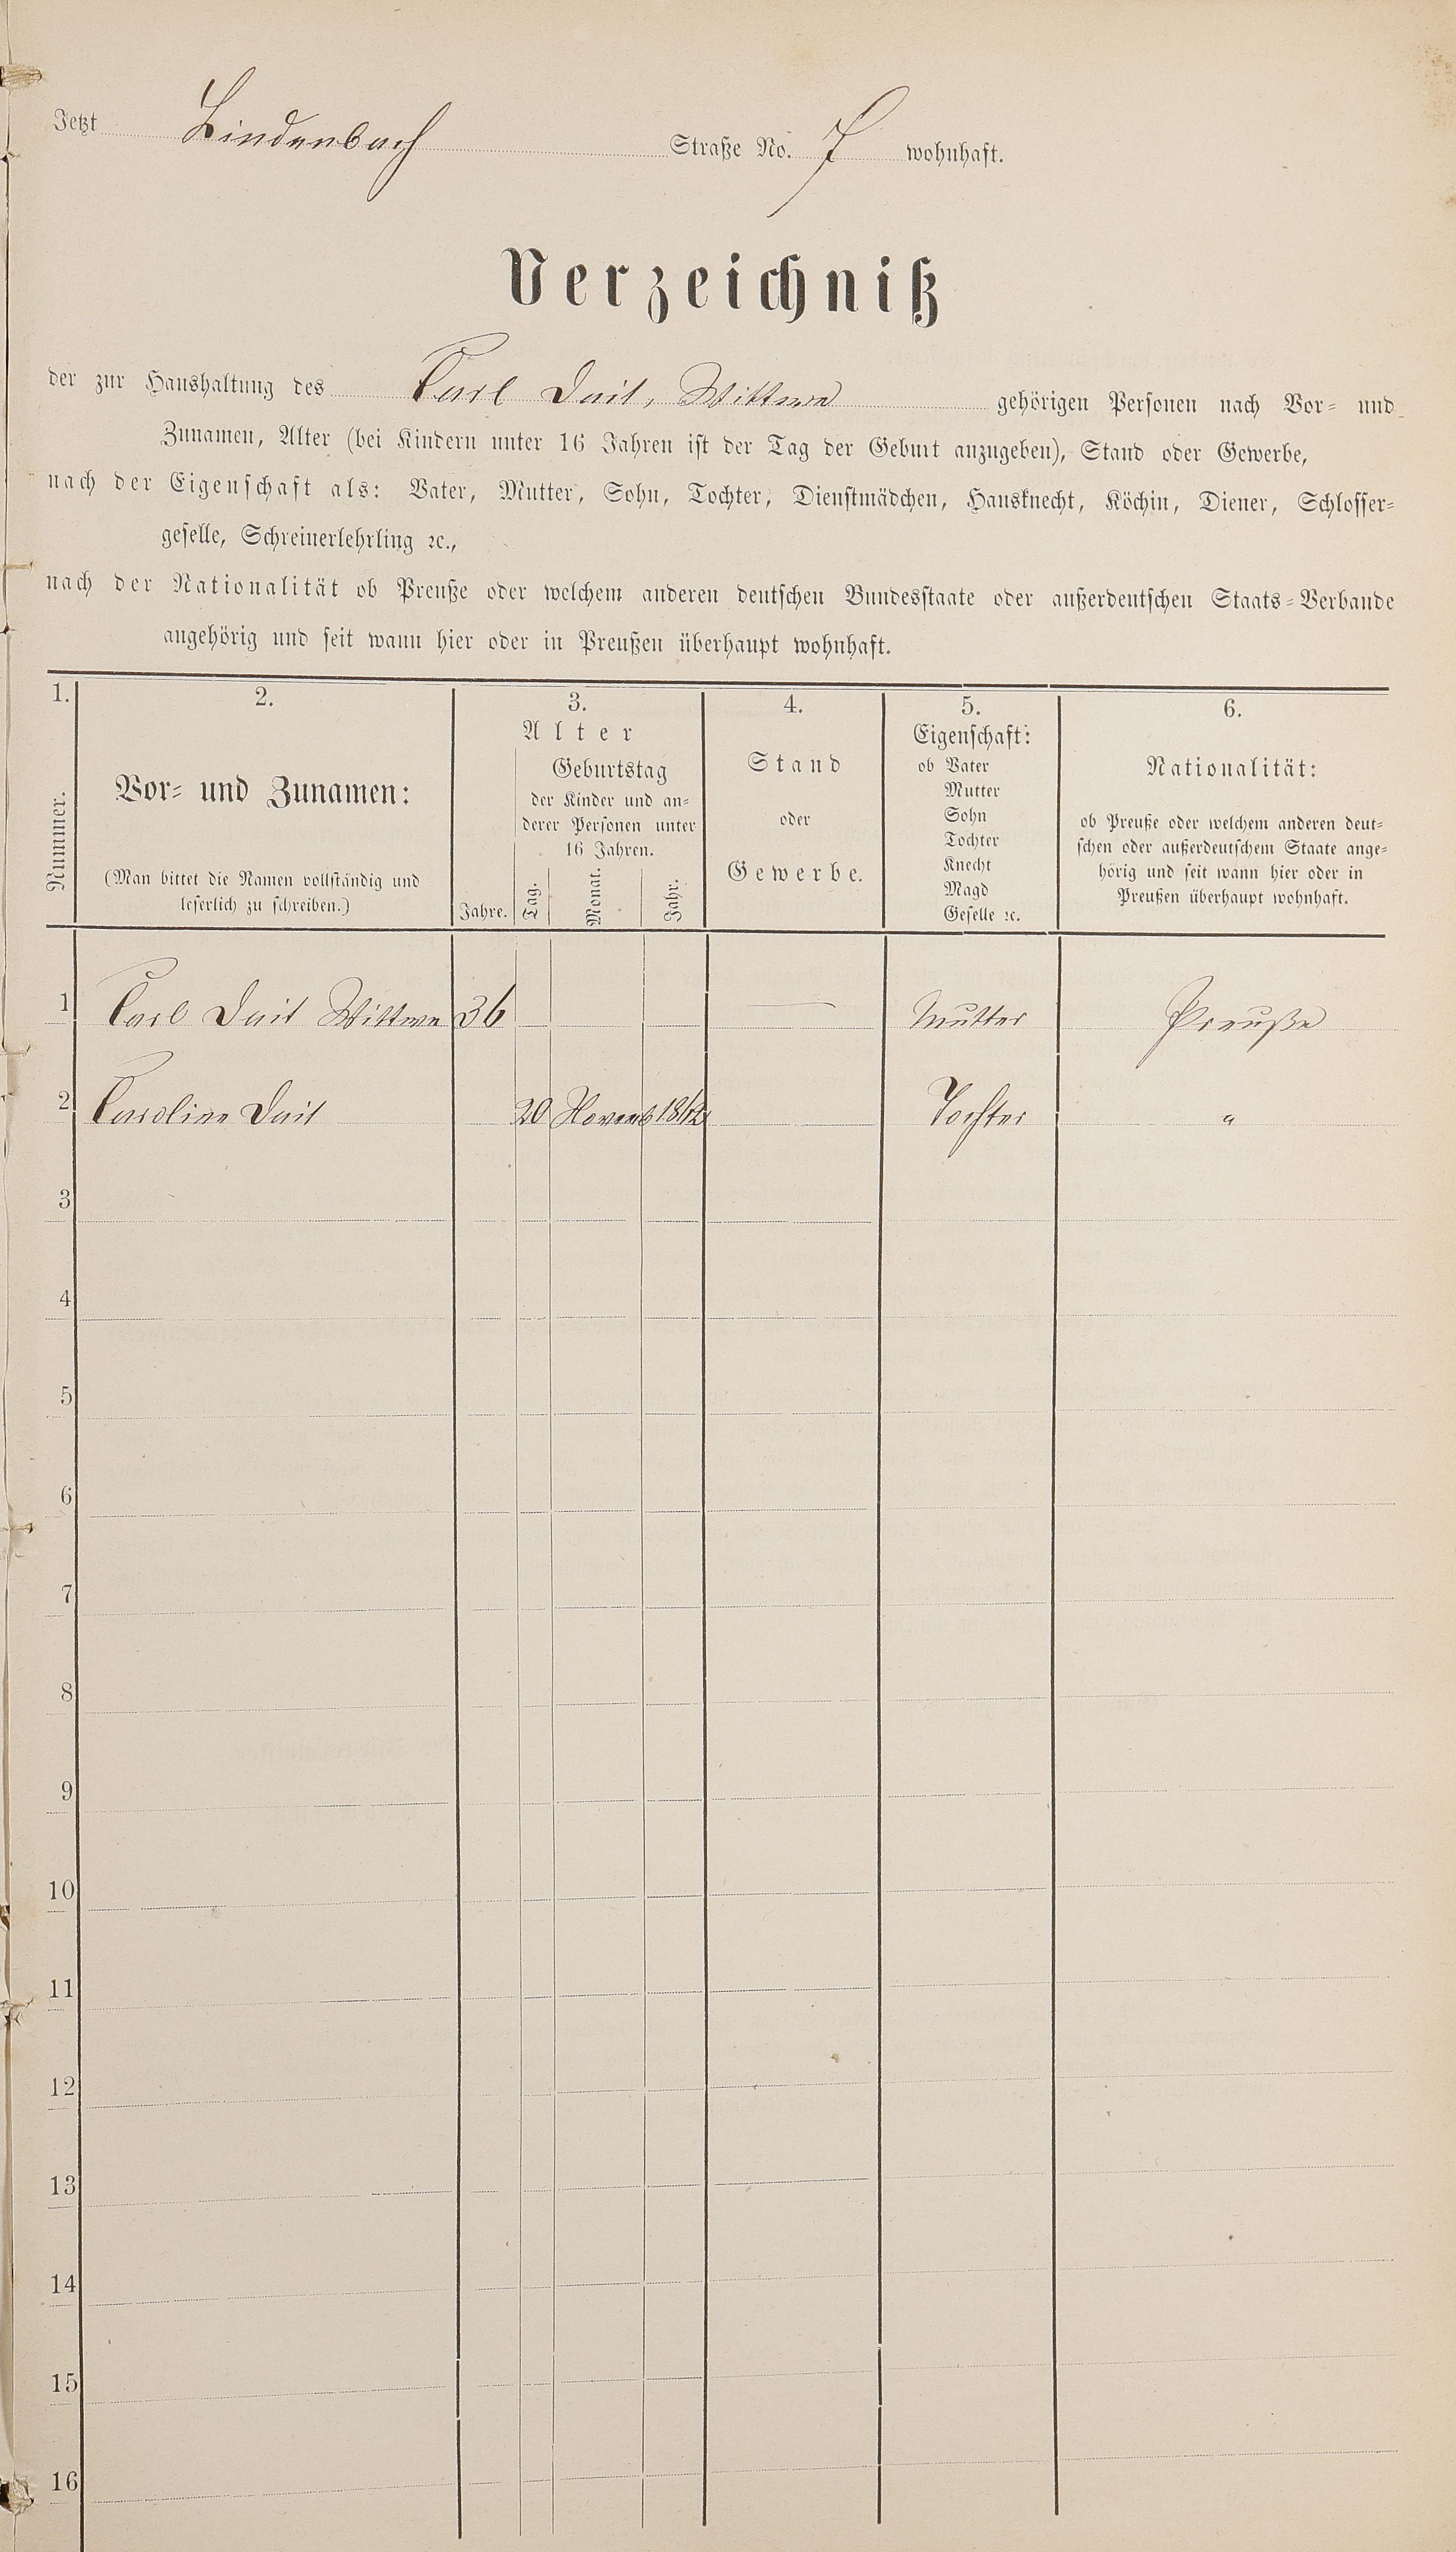 Jetzt Lindenbach Straße No. 7 wohnhaft.
Verzeichniß
der zur Haushaltung des Carl Dail, Wittwe gehörigen Personen nach Vor- und
Zunamen, Alter (bei Kindern unter 16 Jahren ist der Tag der Geburt anzugeben), Stand oder Gewerbe,
nach der Eigenschaft als: Vater, Mutter, Sohn, Tochter, Dienstmädchen, Hausknecht, Köchin, Diener, Schlosser-
geselle, Schreinerlehrling ꝛc.,
nach der Nationalität ob Preuße oder welchem anderen deutschen Bundesstaate oder außerdeutschen Staats-Verbande
angehörig und seit wann hier oder in Preußen überhaupt wohnhaft.
1.
Nummer.
2.
Vor- und Zunamen:
(Man bittet die Namen vollständig und
leserlich zu schreiben.)
3.
Alter
Geburtstag
der Kinder und an-
derer Personen unter
16 Jahren.
Jahre. Tag. Monat. Jahr.
4.
Stand
oder
Gewerbe.
5.
Eigenschaft:
ob Vater
Mutter
Sohn
Tochter
Knecht
Magd
Geselle ꝛc.
6.
Nationalität:
ob Preuße oder welchem anderen deut-
schen oder außerdeutschem Staate ange-
hörig und seit wann hier oder in
Preußen überhaupt wohnhaft.
1 Carl Dail Wittwe 36 — Mutter Preuße
2 Caroline Dail 20 Novemb Tochter "
3
4
5
6
7
8
9
10
11
12
13
14
15
16